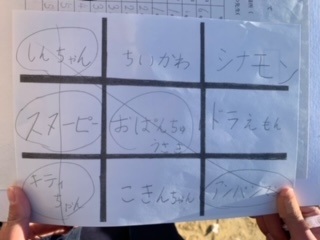 しんちゃん
ちいかわ
シナモン
スヌーピー
おぱんちゅ
うさぎ
ドラえもん
キティ
ちゃん
こきんちゃん
アンパンマン